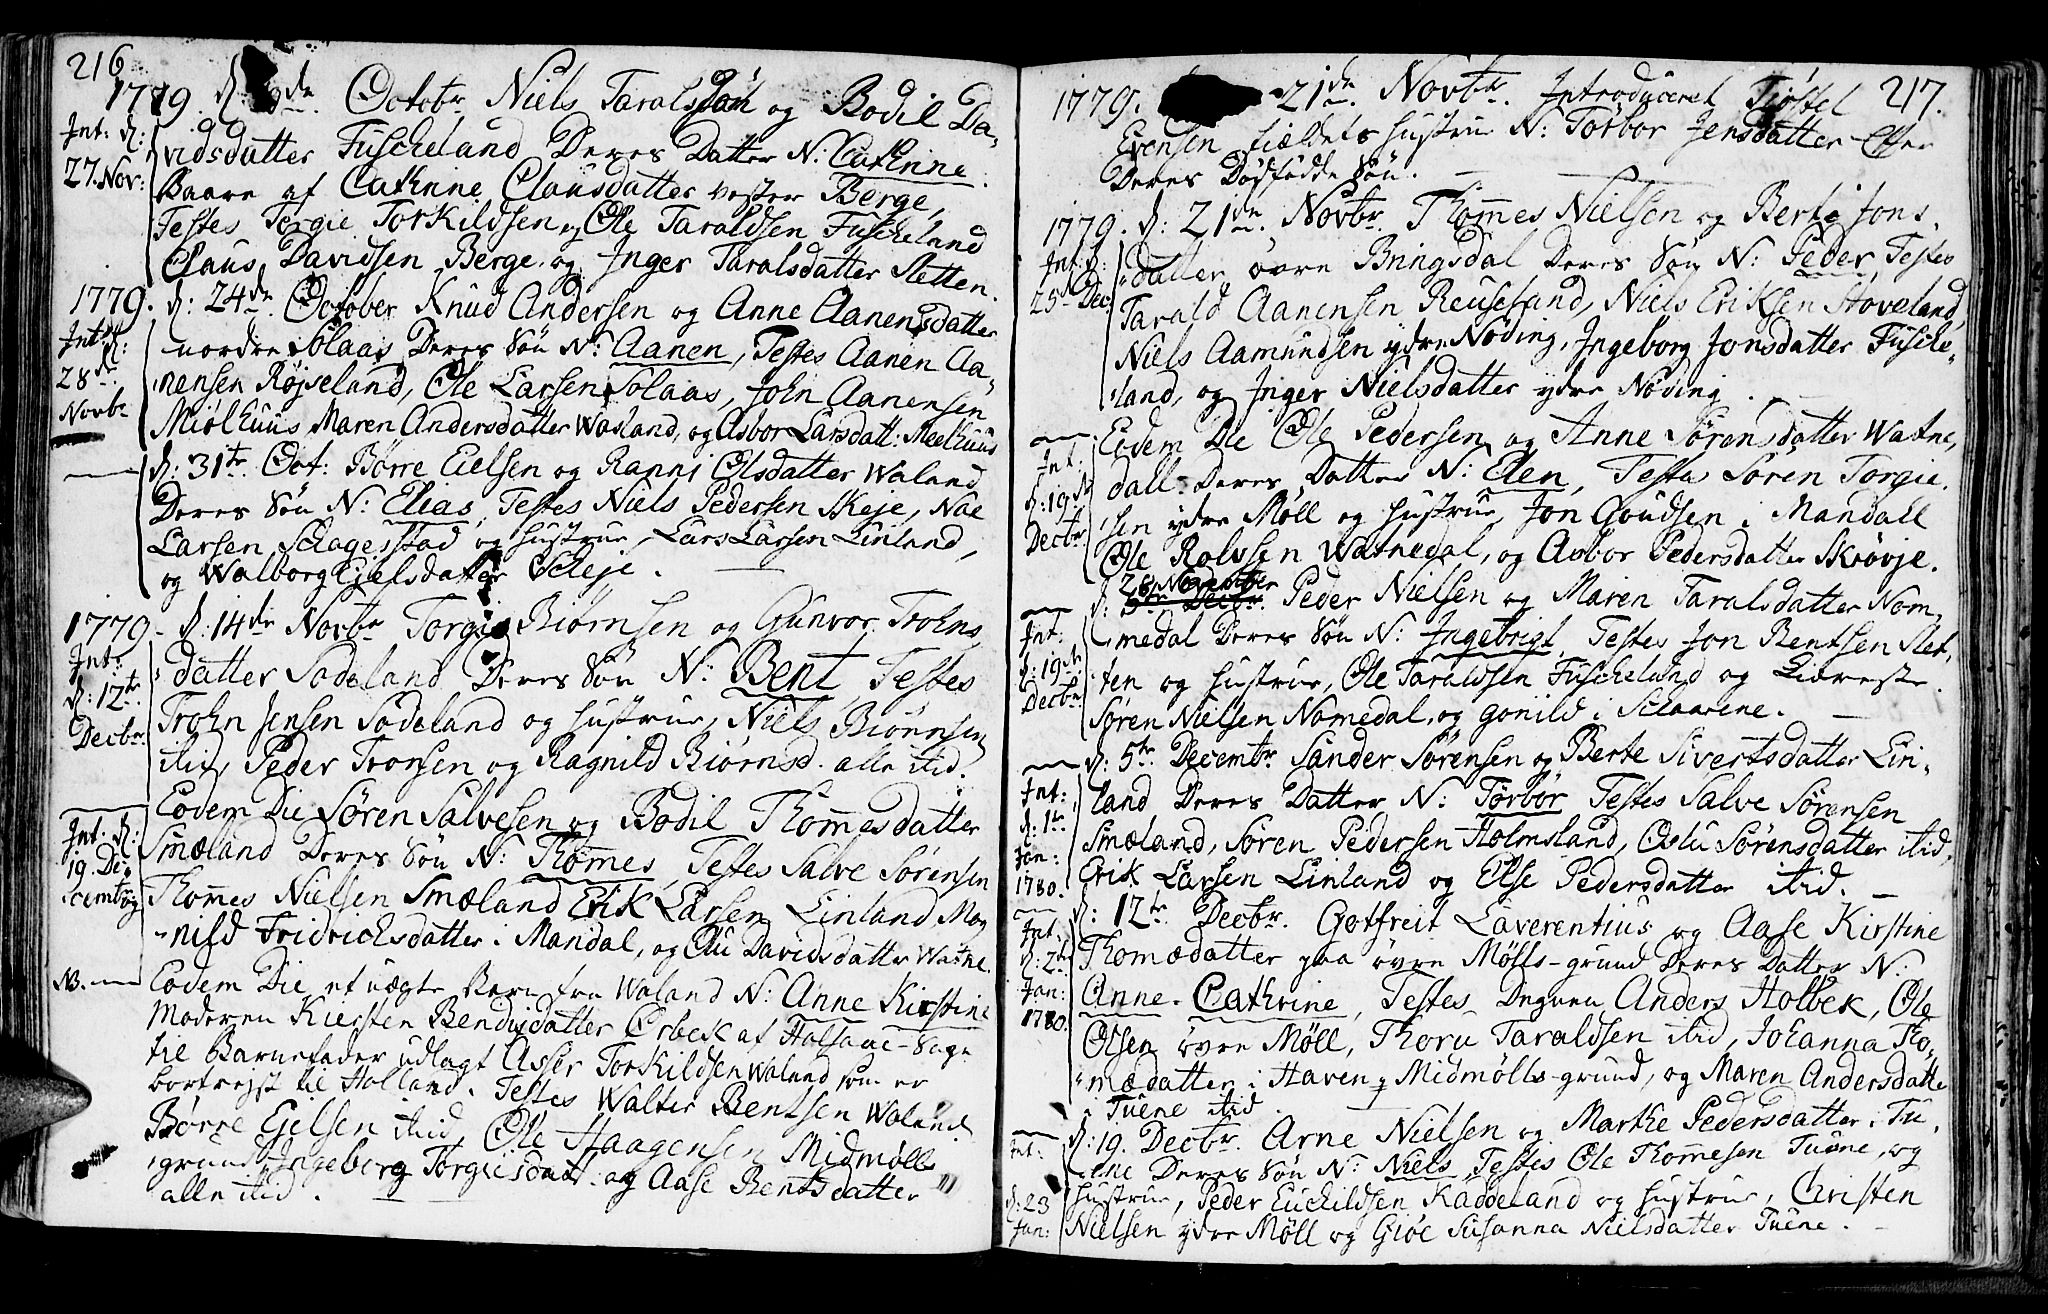 216
1779 d: de October Niels Taralssön og Bodil Da-
Int: d:
27. Nov:
vidsdatter Fuscheland Deres Datter N: Cathrine.
Baare af Cathrine Clausdatter vester Berge,
Testes Torgie Torkildsen, og Ole Taraldsen Fuscheland
Claus Davidsen Berge, og Inger Taralsdatter Sletten.
1779. d: 24de October Knud Andersen og Anne Aanensdatter
Int: d:
28de
Novbr
nordre Solaas Deres Sön N: Aanen, Testes Aanen Aa-
nensen Röjseland, Ole Larsen Solaas, John Aanensen
Miölhuus, Maren Andersdatter Wasland, og Asbor Larsdatt: Meelhuus
d: 31te Oct: Börre Eielsen og Ranni Olsdatter Waland
Deres Sön N: Elias, Testes Niels Pedersen Skeje, Nae
Larsen Schagesstad og hustrue, Lars Larsen Linland,
og Walborg Ejelsdatter Scheje.
1779. d: 14de Novbr Torgie Biörnsen og Gunvor Trohns
Int:
d: 12te
Decbr.
datter Sodeland Deres Sön N: Bent, Testes
Trohn Jensen Sodeland og hustrue, Niels Biörnsen
ibid, Peder Tronsen og Ragnild Biörnsd. alle ibid.
Eodem Die Sören Salvesen og Bodil Thommesdatter
Int. d:
19. De-
cembr
Smæland Deres Sön N: Thommes, Testes Salve Sörensen
Thommes Nielsen Smæland Erik Larsen Linland, Mag
nild Fridrichsdatter i Mandal, og Elii Davidsdatter Watne.
NB. Eodem Die et uægte Barn fra Waland N: Anne Kirstine
Moderen Kiersten Bendixdatter Örbeck af Halsaae-Sogn
til Barnefader udlagt Asser Torkildsen Waland som er
bortrejst til Holland. Testes Walter Bentsen Waland
Börre Ejelsen ibid, Ole Haagensen Midmölls
grund, Ingeborg Torgiesdat: og Aase Bentsdatter
alle ibid.
217.
1779. 21de Novbr. Introduceret Tiöstel
Evensen fieldets hustrue N: Torbor Jensdatter Efter
Deres Dödfödde Sön.
1779. d: 21de Novbr Thommes Nielsen og Berte Jons
Int. d:
25 Dec:
datter övre Bringsdal Deres Sön N: Peder, Testes
Tarald Aanensen Reuseland, Niels Eriksen Stoveland,
Niels Aamundsen ydre Nöding, Ingeborg Jonsdatter Fusche-
land, og Inger Nielsdatter ydre Nöding.
Eodem Die Ole Pedersen og Anne Sörensdatter Watne,
Int:
d: 19de
Decbr
dall. Deres Datter N: Elen, Testes Sören Torgie
sen ydre Möll og hustrue, Jon Goudsen i Mandall
Ole Rolvsen Watnedal, og Asbor Pedersdatter Skövje.
28 November
d: 5te Decbr. Peder Nielsen og Maren Taralsdatter Nom
Int:
d: 19de
Decbr
medal Deres Sön N: Ingebrigt, Testes Jon Bentsen Slet,
ten og hustrue, Ole Taraldsen Fuscheland og
Sören Nielsen Nomedal, og Gonild i Schaarene.
d: 5te Decembr Sander Sörensen og Berte Sivertsdatter Lin-
Int:
d: 1te
Jan:
1780.
land Deres Datter N: Törbör Testes Salve Sörensen
Smæland, Sören Pedersen Holmsland, Oslu Sörensdatter ibid,
Erik Larsen Linland og Else Pedersdatter ibid.
d: 12te Decbr. Gotfreit Laverentius og Aase Kirstine
Int.
d: 2de
Jan:
1780.
Thomædatter paa övre Mölls-grund Deres Datter N:
Anne Cathrine, Testes Degnen Anders Holbek, Ole
Olsen övre Möll, Thoru Taraldsen ibid, Johanna Tho-
mædatter i Haven p Midmölls-grund, og Maren Andersdatte
i Tuene ibid.
d: 19. Decbr. Arne Nielsen og Marthe Pedersdatter i Tu,
Int:
d: 23
Jan:
ene Deres Sön N: Niels, Testes Ole Thommesen Tuene, og
hustrue, Peder Euchildsen Kaddeland og hustrue, Christen
Nielsen ydre Möll og Giöe Susanna Nielsdatter Tuene.